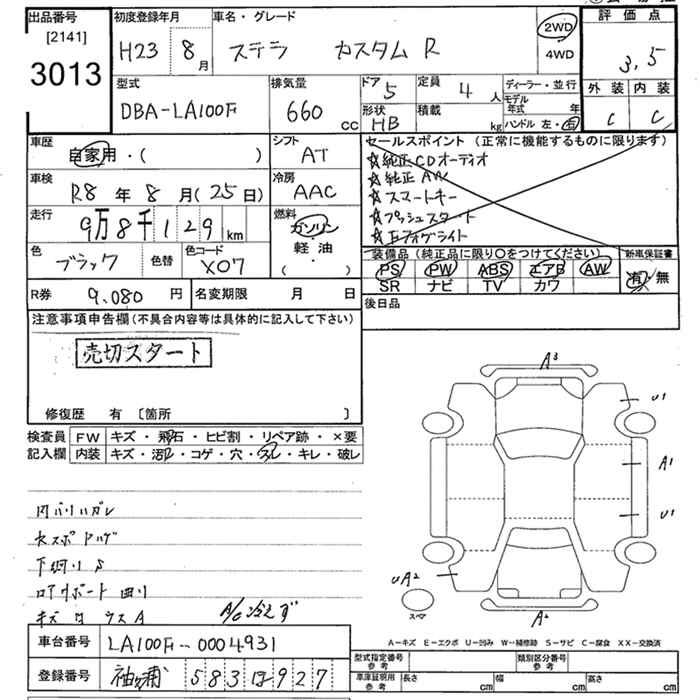 出品番号 [2141] 3013
初度登録年月 H23 8月
車名・グレード ステラ カスタム R
2WD
4WD
評価点 3.5
外装 C 内装 C
型式 DBA-LA100F
排気量 660 cc
ドア 5
定員 4人
形状 HB
積載 kg
ディーラー・並行
モデル年式 年
ハンドル 左・右
車歴 自家用・( )
シフト AT
車検 R8年8月(25日)
冷房 AAC
走行 9万8千129 km
燃料 ガソリン 軽油・( )
色 ブラック 色替
色コード X07
R券 9,080円
名変期限 月 日
セールスポイント(正常に機能するものに限ります)
☆純正CDオーディオ
☆純正AW
☆スマートキー
☆プッシュスタート
☆フォグライト
装備品(純正品に限り〇をつけてください)
PS PW ABS エアB AW
SR ナビ TV カワ
新車保証書 有・無
後日品
注意事項申告欄(不具合内容等は具体的に記入して下さい)
売切スタート
修復歴 有〔箇所 〕
検査員記入欄
FW キズ・飛石・ヒビ割・リペア跡・×要
内装 キズ・汚れ・コゲ・穴・スレ・キレ・破レ
内バリハガレ
下廻りS
ロアサポート曲り
キズ
ウスA
車台番号 LA100F-0004931
登録番号 袖ヶ浦 583 927
A3
U1
A1
U1
UA2
スペア
A2
A−キズ E−エクボ U−凹み W−補修跡 S−サビ C−腐食 XX−交換済
型式指定番号 参考
類別区分番号 参考
車庫証明用 参考 長さ cm 幅 cm 高さ cm